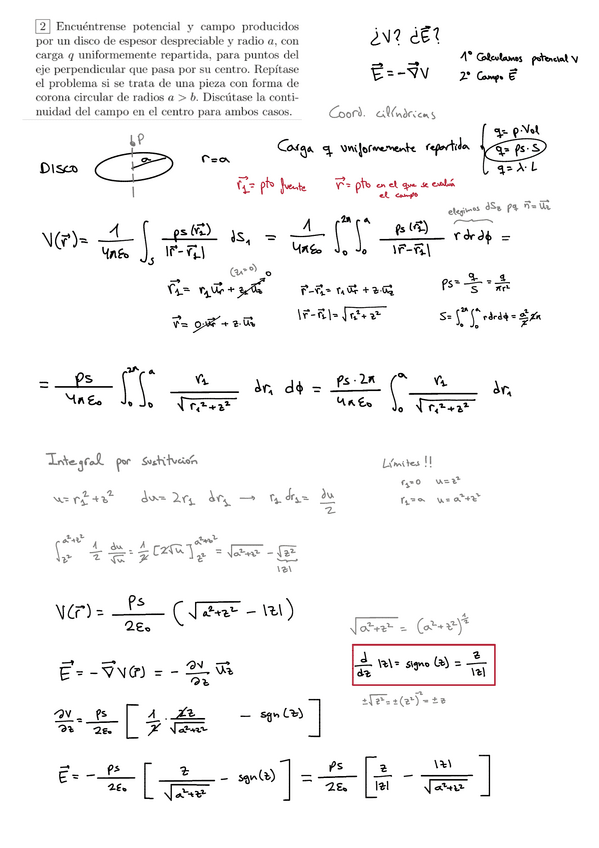 2 Encuéntrense potencial y campo producidos
por un disco de espesor despreciable y radio a, con
carga q uniformemente repartida, para puntos del
eje perpendicular que pasa por su centro. Repítase
el problema si se trata de una pieza con forma de
corona circular de radios a > b. Discútase la conti-
nuidad del campo en el centro para ambos casos.
¿V? ¿E⃗?
E⃗ = -∇⃗V
1º Calculamos potencial V
2º Campo E⃗
Coord. cilíndricas
DISCO
P
a
r=a
Carga q uniformemente repartida { q= ρ·Vol
q= ρs·S
q= λ·L
r⃗₁= pto fuente
r⃗= pto en el que se evalúa
el campo
elegimos dS_z pq n⃗=u⃗z
V(r⃗)= 1/4πε₀ ∫_S ρs(r⃗₁)/|r⃗-r⃗₁| dS₁ = 1/4πε₀ ∫₀^2π ∫₀^a ρs(r⃗₁)/|r⃗-r⃗₁| r dr dϕ =
(z₁=0)
r⃗₁= r₁u⃗r + z₁u⃗z 0
r⃗-r⃗₁= r₁u⃗r + z·u⃗z
ρs= q/S = q/πr²
r⃗= 0·u⃗r + z·u⃗z
|r⃗-r⃗₁|= √(r₁²+z²)
S= ∫₀^2π ∫₀^a r dr dϕ = a²/2 2π
= ρs/4πε₀ ∫₀^2π ∫₀^a r₁/√(r₁²+z²) dr₁ dϕ = ρs·2π/4πε₀ ∫₀^a r₁/√(r₁²+z²) dr₁
Integral por sustitución
Límites!!
u= r₁²+z² du= 2r₁ dr₁ → r₁ dr₁= du/2
r₁=0 u=z²
r₁=a u=a²+z²
∫_z²^a²+z² 1/2 du/√u = 1/2 [2√u]_z²^a²+z² = √(a²+z²) - √z²
|z|
V(r⃗)= ρs/2ε₀ (√(a²+z²) - |z|)
√(a²+z²) = (a²+z²)^1/2
E⃗= -∇⃗V(r⃗)= - ∂V/∂z u⃗z
d/dz |z|= signo (z) = z/|z|
±√z²= ±(z²)^½ = ±z
∂V/∂z= ρs/2ε₀ [ 1/2 · 2z/√(a²+z²) - sgn(z) ]
E⃗= - ρs/2ε₀ [ z/√(a²+z²) - sgn(z) ] = ρs/2ε₀ [ z/|z| - |z|/√(a²+z²) ]